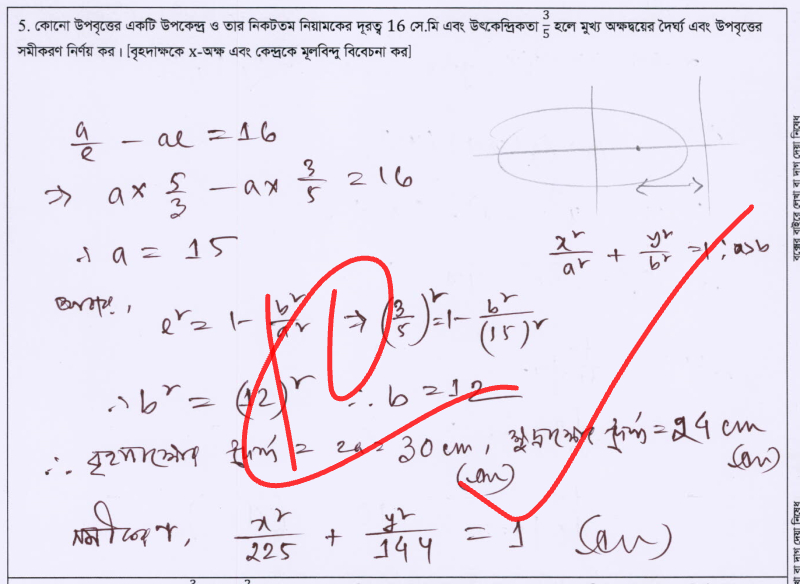 5. কোনো উপবৃত্তের একটি উপকেন্দ্র ও তার নিকটতম নিয়ামকের দূরত্ব 16 সে.মি এবং উৎকেন্দ্রিকতা 3/5 হলে মুখ্য অক্ষদ্বয়ের দৈর্ঘ্য এবং উপবৃত্তের
সমীকরণ নির্ণয় কর। [বৃহদাক্ষকে x-অক্ষ এবং কেন্দ্রকে মূলবিন্দু বিবেচনা কর]
a/e - ae = 16
⇒ a × 5/3 - a × 3/5 = 16
∴ a = 15
x²/a² + y²/b² = 1 ; a>b
আবার, e² = 1 - b²/a² ⇒ (3/5)² = 1 - b²/(15)²
∴ b² = (12)² ∴ b = 12
∴ বৃহদাক্ষের দৈর্ঘ্য = 2a = 30 cm, ক্ষুদ্রাক্ষের দৈর্ঘ্য = 24 cm
(Ans) (Ans)
সমীকরণ, x²/225 + y²/144 = 1 (Ans)
বক্সের বাইরে লেখা বা দাগ দেয়া নিষেধ